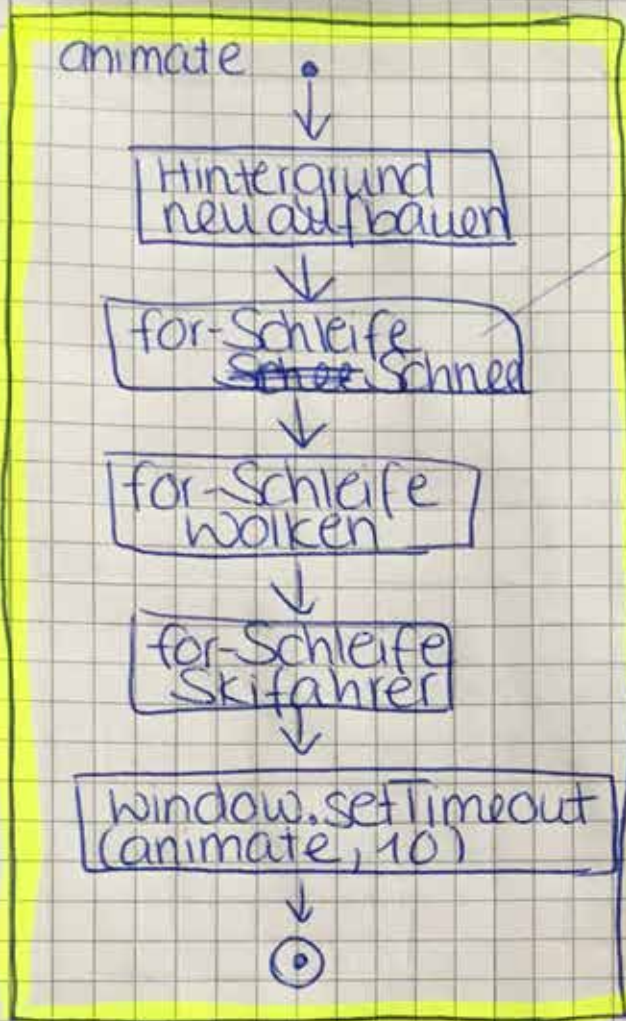 animate
Hintergrund
neu aufbauen
for-Schleife
Schnee
for-Schleife
Wolken
for-Schleife
Skifahrer
window.setTimeout
(animate, 10)